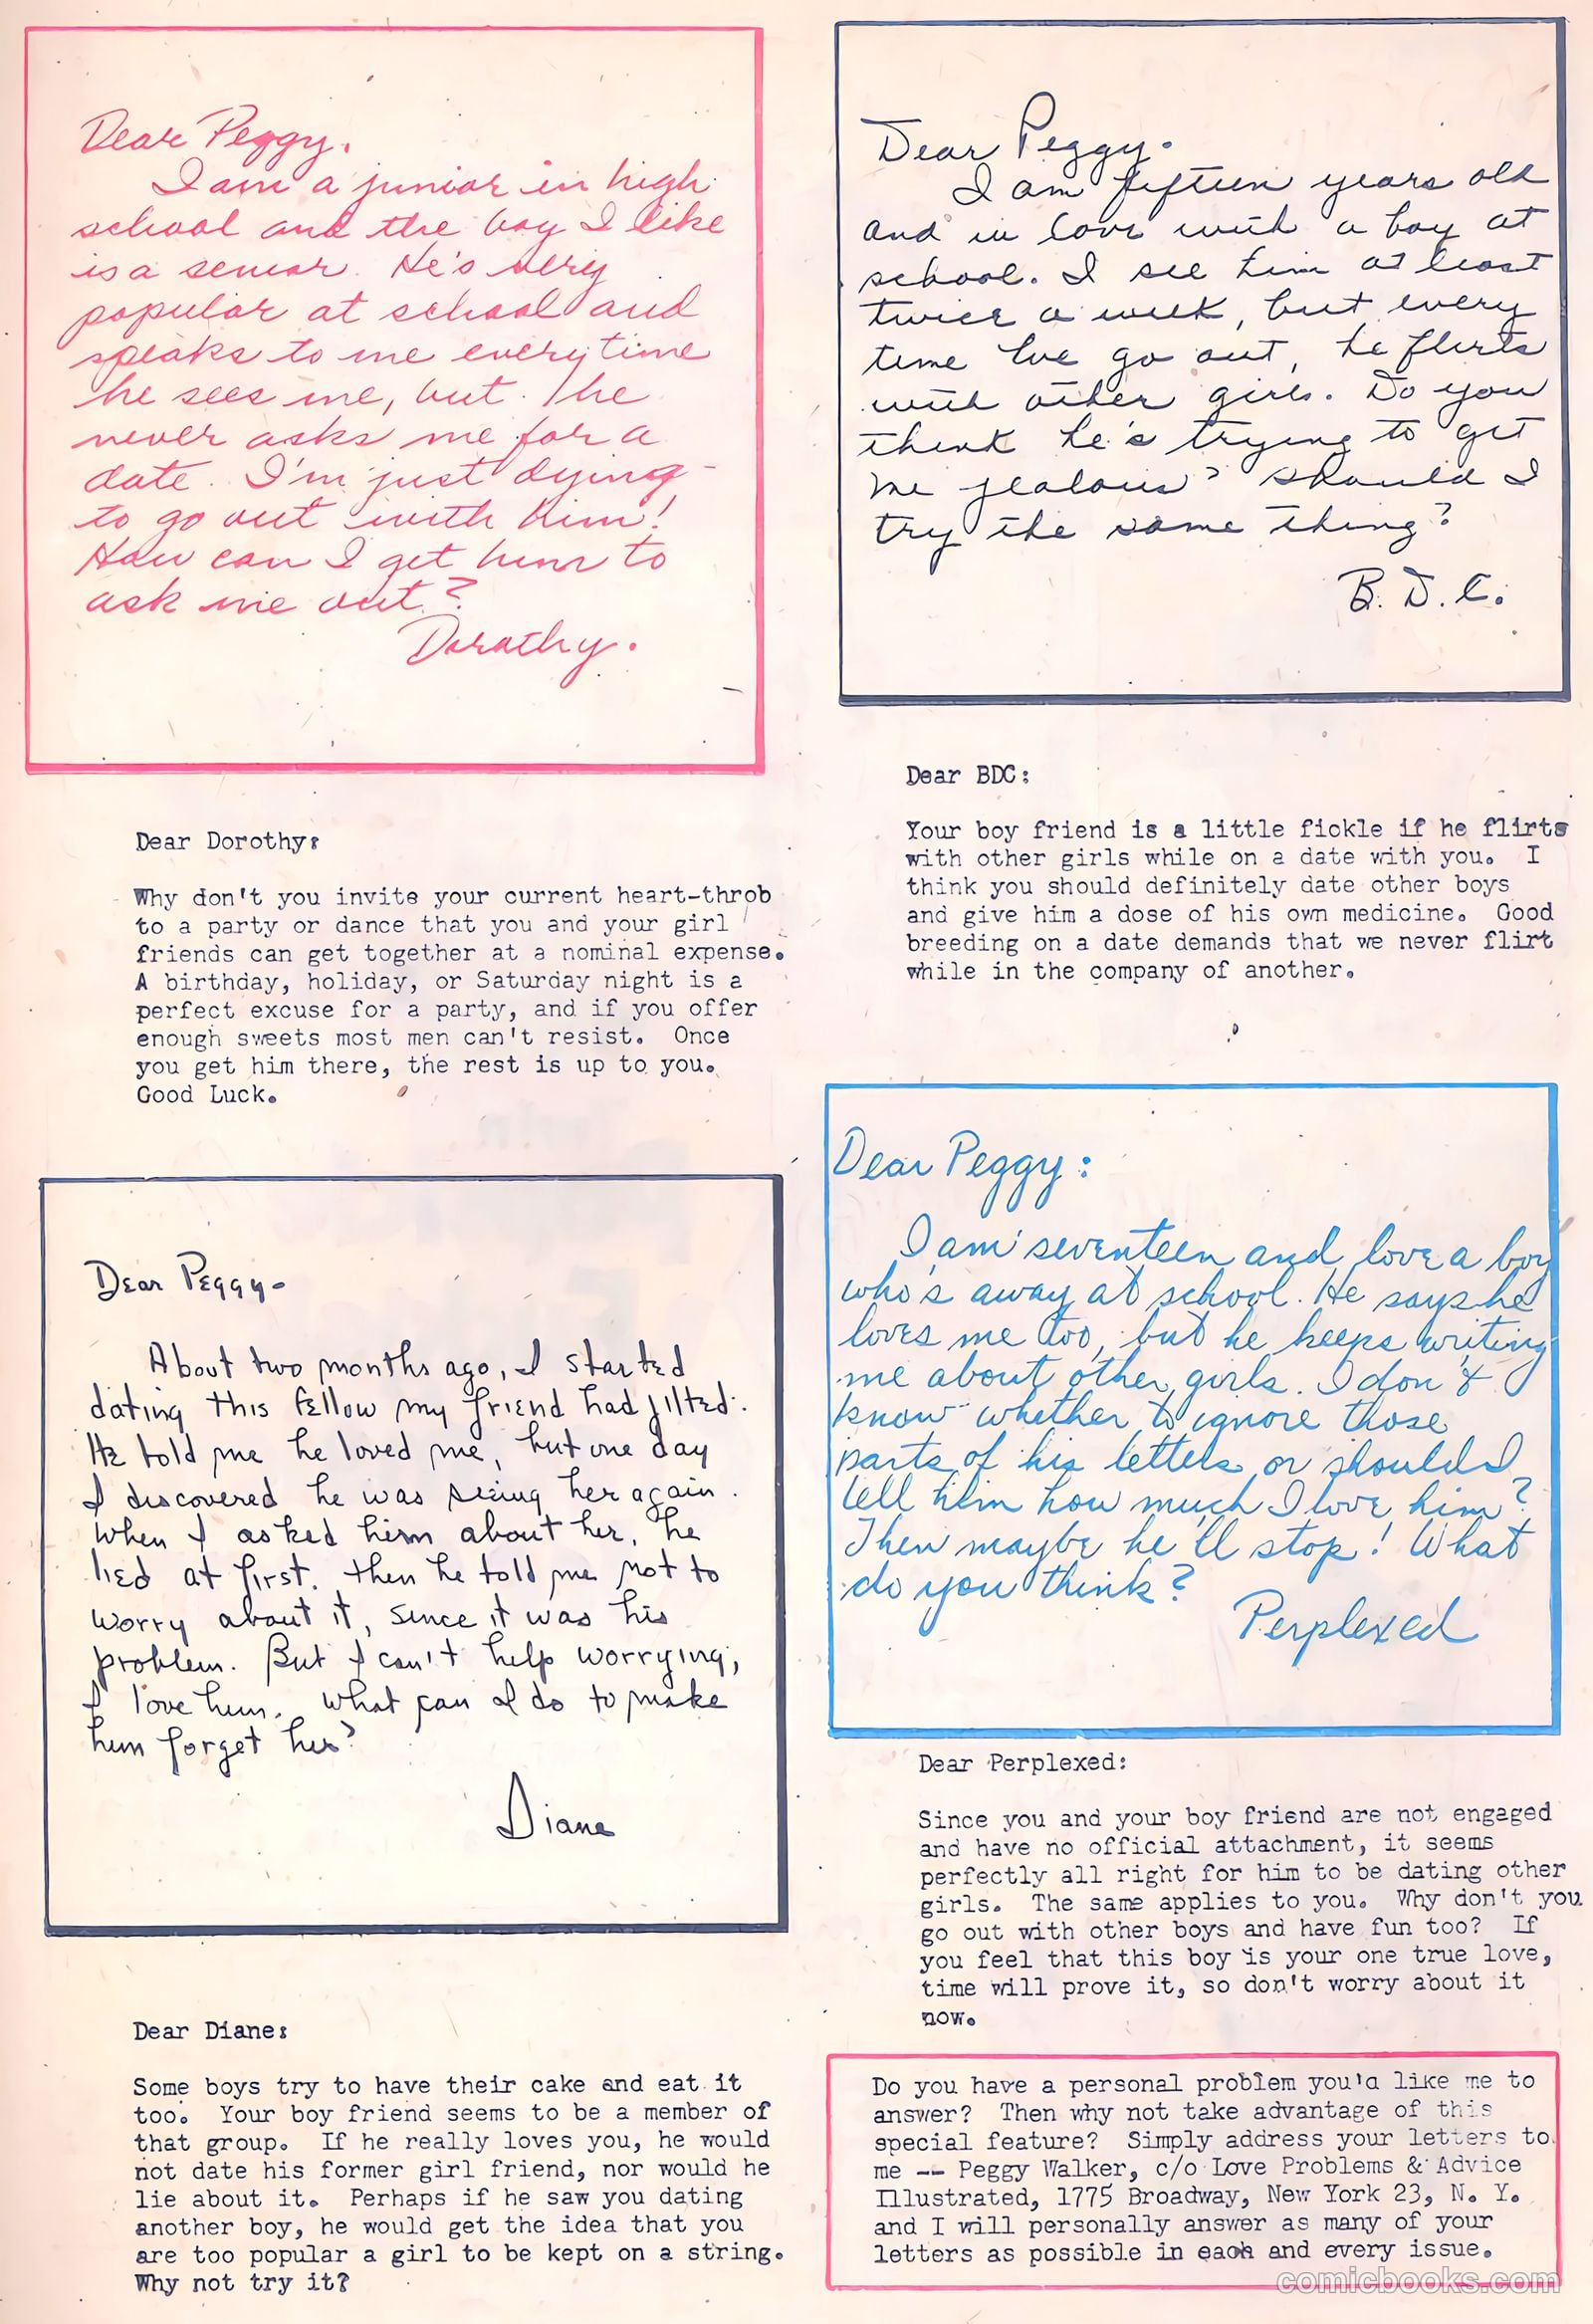 Dear Peggy.
I am a junior in high
school and the boy I like
is a senior. He's very
popular at school and
speaks to me everytime
he sees me, but he
never asks me for a
date. I'm just dying
to go out with him!
How can I get him to
ask me out?
Dorothy.
Dear Dorothy:
Why don't you invite your current heart-throb
to a party or dance that you and your girl
friends can get together at a nominal expense.
A birthday, holiday, or Saturday night is a
perfect excuse for a party, and if you offer
enough sweets most men can't resist. Once
you get him there, the rest is up to you.
Good Luck.
Dear Peggy-
About two months ago, I started
dating this fellow my friend had jilted.
He told me he loved me, but one day
I discovered he was seeing her again.
When I asked him about her, he
lied at first. then he told me not to
worry about it, since it was his
problem. But I can't help worrying,
I love him. What can I do to make
him forget her?
Diane
Dear Diane:
Some boys try to have their cake and eat it
too. Your boy friend seems to be a member of
that group. If he really loves you, he would
not date his former girl friend, nor would he
lie about it. Perhaps if he saw you dating
another boy, he would get the idea that you
are too popular a girl to be kept on a string.
Why not try it?
Dear Peggy.
I am fifteen years old
and in love with a boy at
school. I see him at least
twice a week, but every
time we go out, he flirts
with other girls. Do you
think he's trying to get
me jealous? Should I
try the same thing?
B. D. C.
Dear BDC:
Your boy friend is a little fickle if he flirts
with other girls while on a date with you. I
think you should definitely date other boys
and give him a dose of his own medicine. Good
breeding on a date demands that we never flirt
while in the company of another.
Dear Peggy:
I am seventeen and love a boy
who's away at school. He says he
loves me too, but he keeps writing
me about other girls. I don't
know whether to ignore those
parts of his letters or should I
tell him how much I love him?
Then maybe he'll stop! What
do you think?
Perplexed
Dear Perplexed:
Since you and your boy friend are not engaged
and have no official attachment, it seems
perfectly all right for him to be dating other
girls. The same applies to you. Why don't you
go out with other boys and have fun too? If
you feel that this boy is your one true love,
time will prove it, so don't worry about it
now.
Do you have a personal problem you'd like me to
answer? Then why not take advantage of this
special feature? Simply address your letters to
me -- Peggy Walker, c/o Love Problems & Advice
Illustrated, 1775 Broadway, New York 23, N. Y.
and I will personally answer as many of your
letters as possible in each and every issue.
comicbooks.com